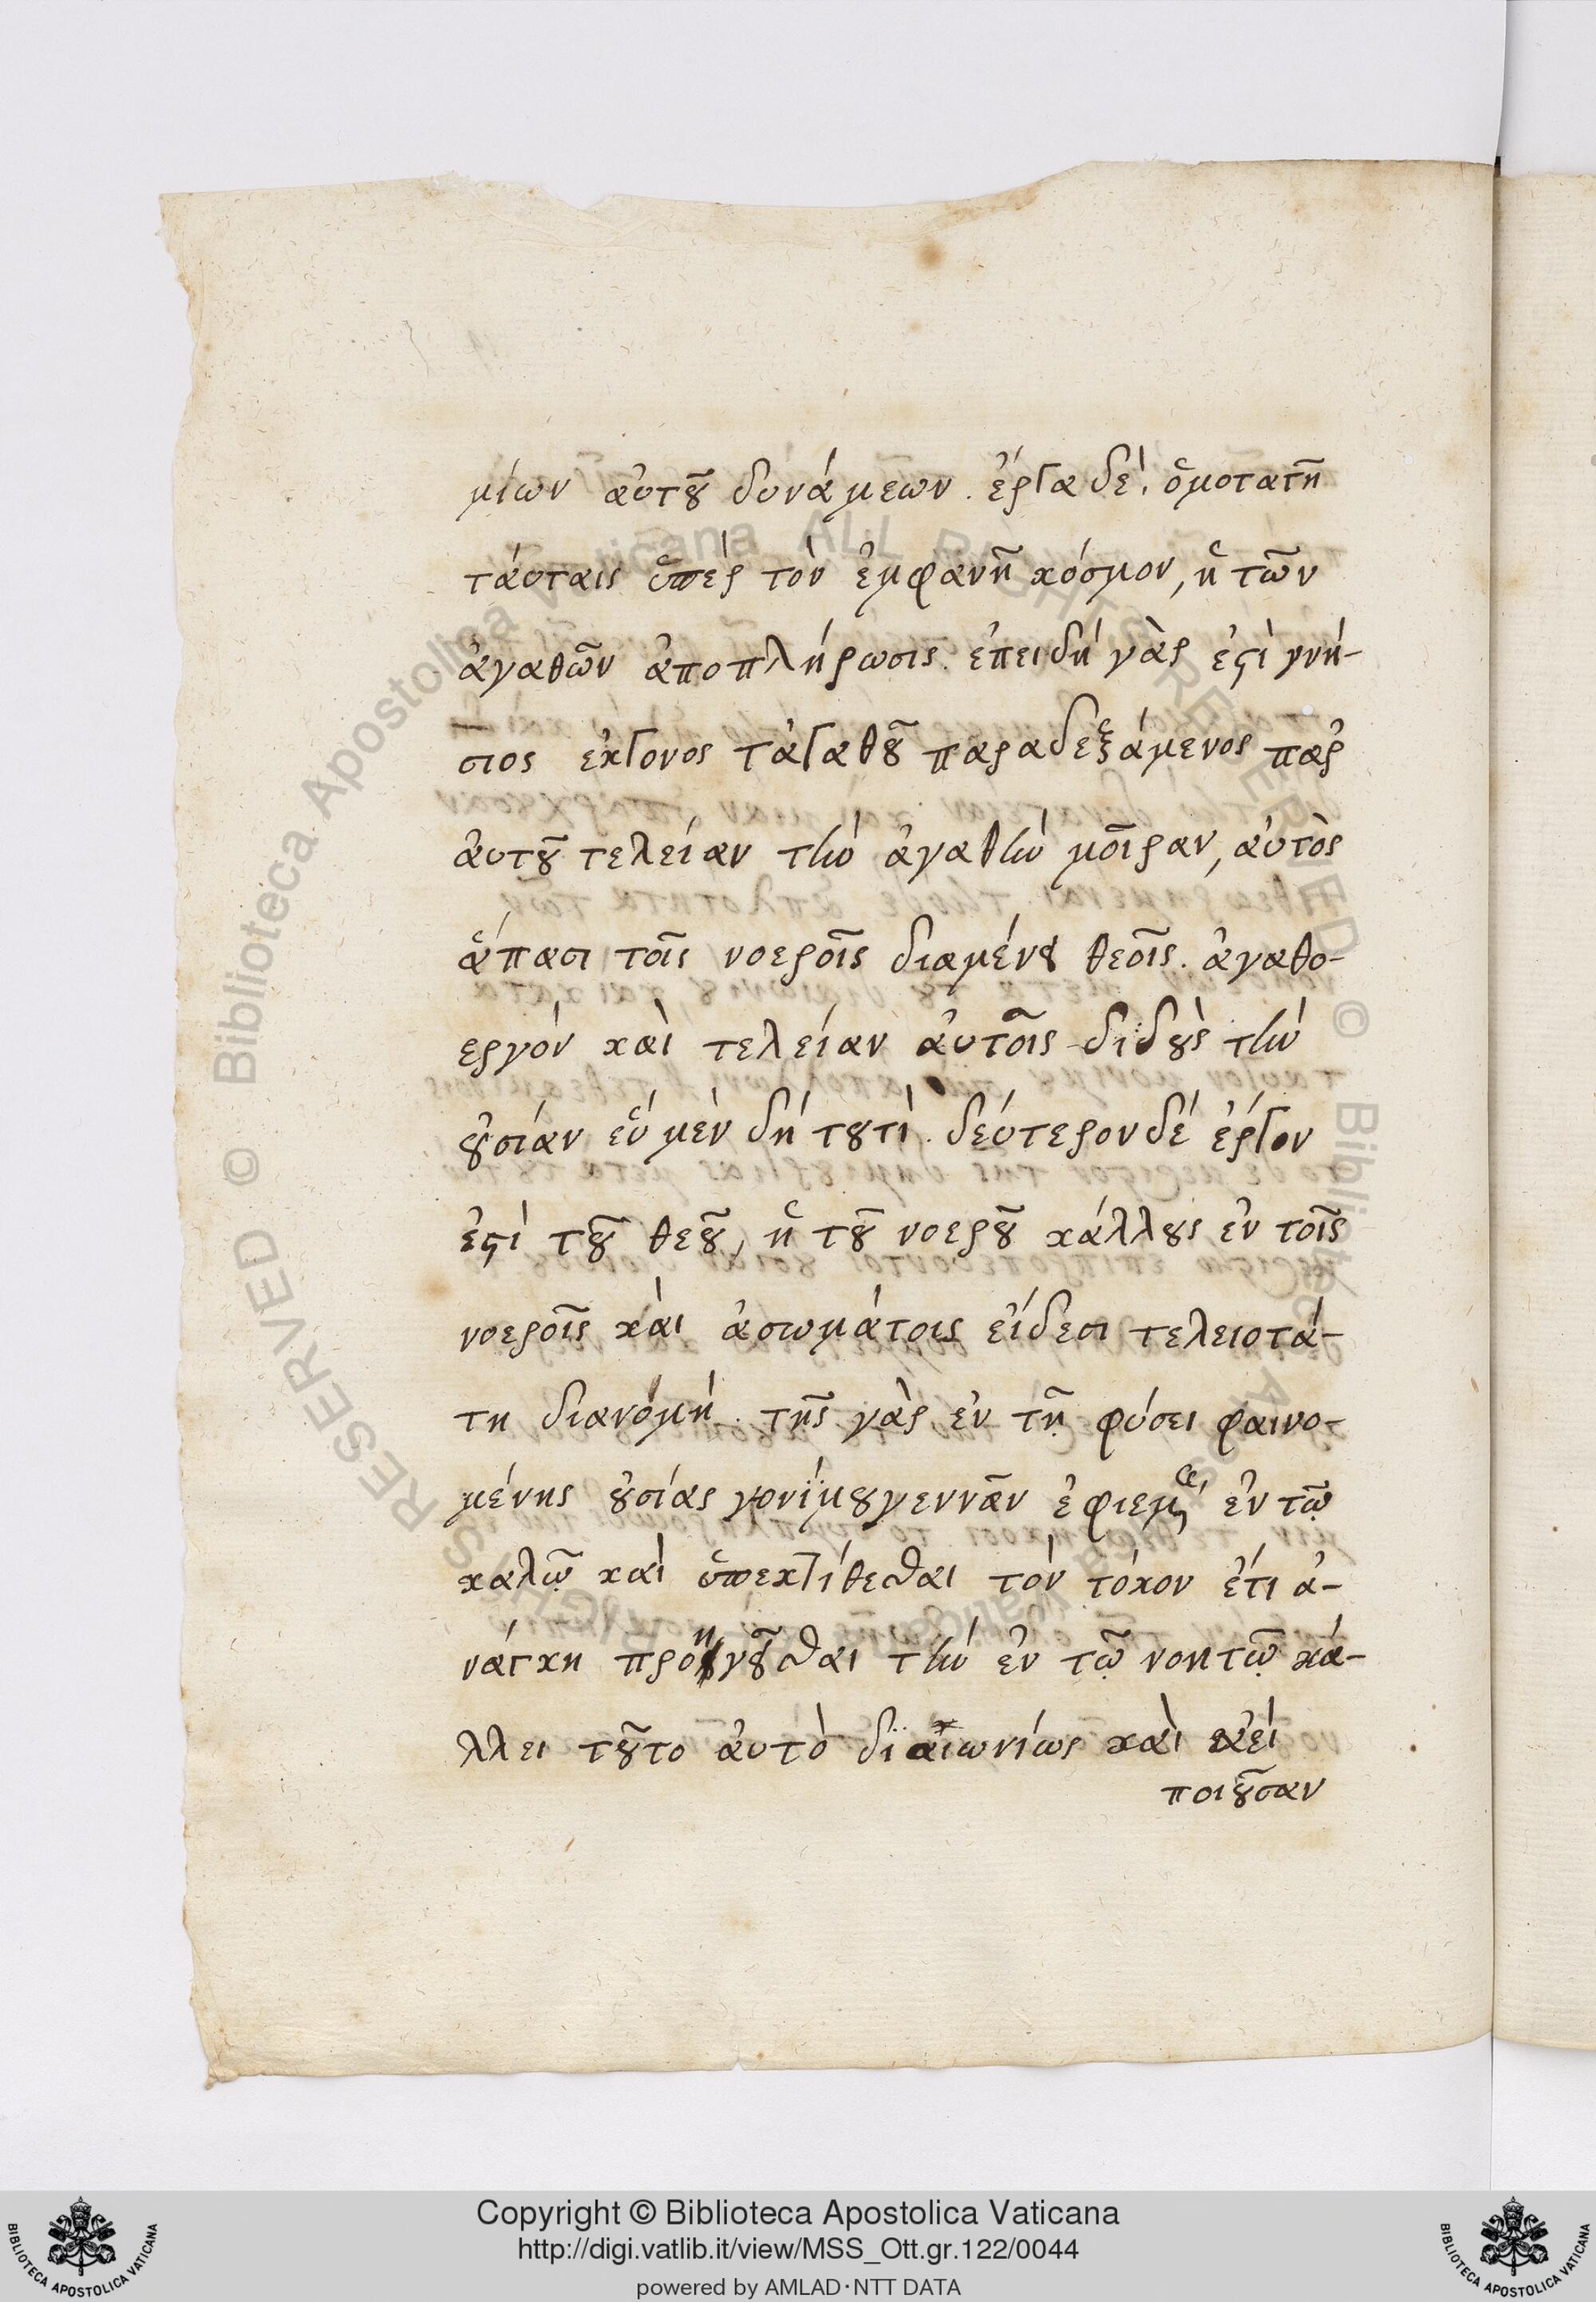 μίων αὐτοῦ δυνάμεων. ἔργα δέ, ὁμοταγῆ
τάυταις ὑπὲρ τὸν ἐμφανῆ κόσμον, ἡ τῶν
ἀγαθῶν ἀποπλήρωσις. ἐπειδή γὰρ ἐστὶ γνή-
σιος ἔκγονος τἀγαθοῦ παραδεξάμενος παρ᾽
ἀυτοῦ τελείαν τὴν ἀγαθὴν μοῖραν, αὐτὸς
ἅπασι τοῖς νοεροῖς διαμένου θεοῖς. ἀγαθο-
εργόν καὶ τελείαν ἀυτοῖς διδοὺς τὴν
οὐσίαν ἕν μὲν δή τουτὶ. δεύτερον δέ ἔργον
ἐστὶ τοῦ θεοῦ, ἡ τοῦ νοεροῦ κάλλους ἐν τοῖς
νοεροῖς καὶ ἀσωμάτοις εἴδεσι τελειοτά-
τη διανομή. τῆς γὰρ ἐν τῇ φύσει φαινο-
μένης οὐσίας γονίμου γεννᾶν ἐφιεμένης ἐν τῷ
καλῷ καὶ ὑπεκτίθεσθαι τὸν τόκον ἔτι ἀ-
νάγκη προηγοῦσθαι τὴν ἐν τῷ νοητῷ κά-
λλει τοῦτο ἀυτὸ διαιωνίως καὶ ἀεὶ
ποιοῦσαν
Copyright © Biblioteca Apostolica Vaticana
http://digi.vatlib.it/view/MSS_Ott.gr.122/0044
powered by AMLAD·NTT DATA